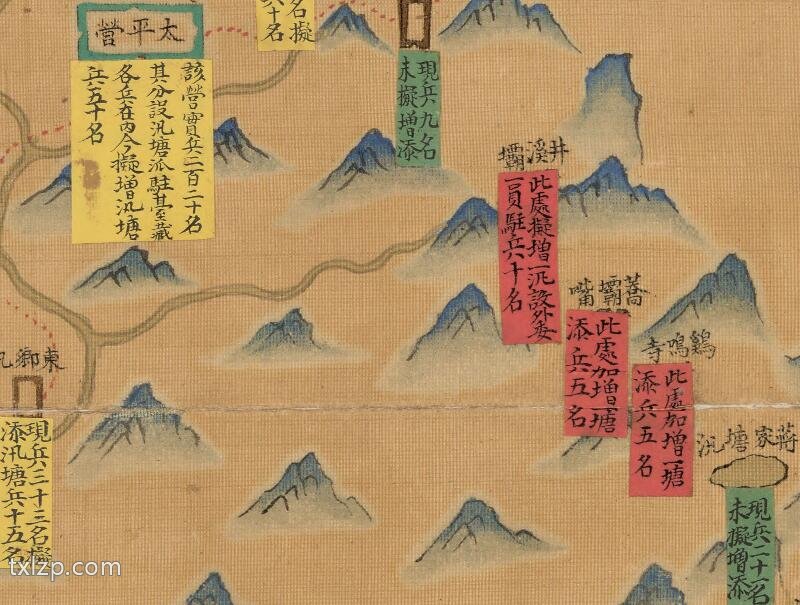 太平營
該營實兵二百二十名
其分設汛塘派駐其至藏
各兵在內今擬增汛塘
兵五十名
名擬
六十名
現兵九名
未擬增添
井溪壩
此處擬增一汛設外委
一員駐兵六十名
蕎壩嘴
此處加增一塘
添兵五名
鷄鳴寺
此處加增一塘
添兵五名
蔣家塘汛
現兵二十一名
未擬增添
東鄉
現兵三十三名擬
添汛塘兵十五名
txlzp.com